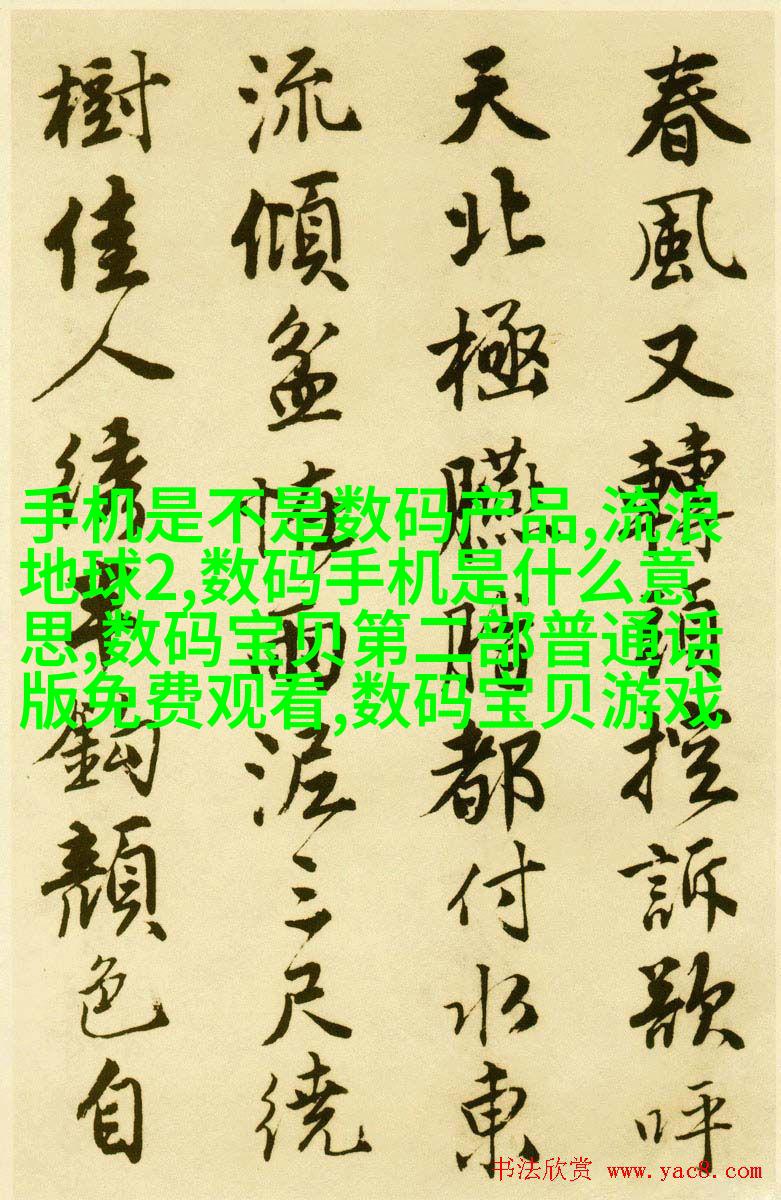 春風又轉頭控訴欲呼
天北極臙脂都付水東
流傾盆怪雨泥三尺繞
樹佳人繡半鉤顏色自
手机是不是数码产品,流浪
地球2,数码手机是什么意
思,数码宝贝第二部普通话
版免费观看,数码宝贝游戏
书法欣赏 www.yac8.com